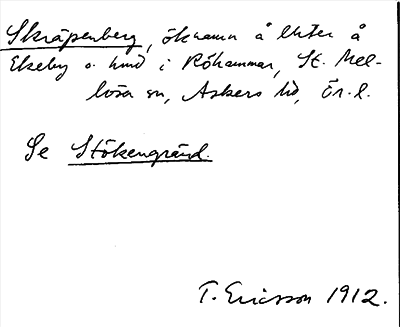 Skräpenberg, öknamn å luter å
Ekeby o. hmd i Röhammar, St. Mel-
lösa sn, Askers hd, Ör. l.
Se Stökengränd.
T. Ericsson 1912.